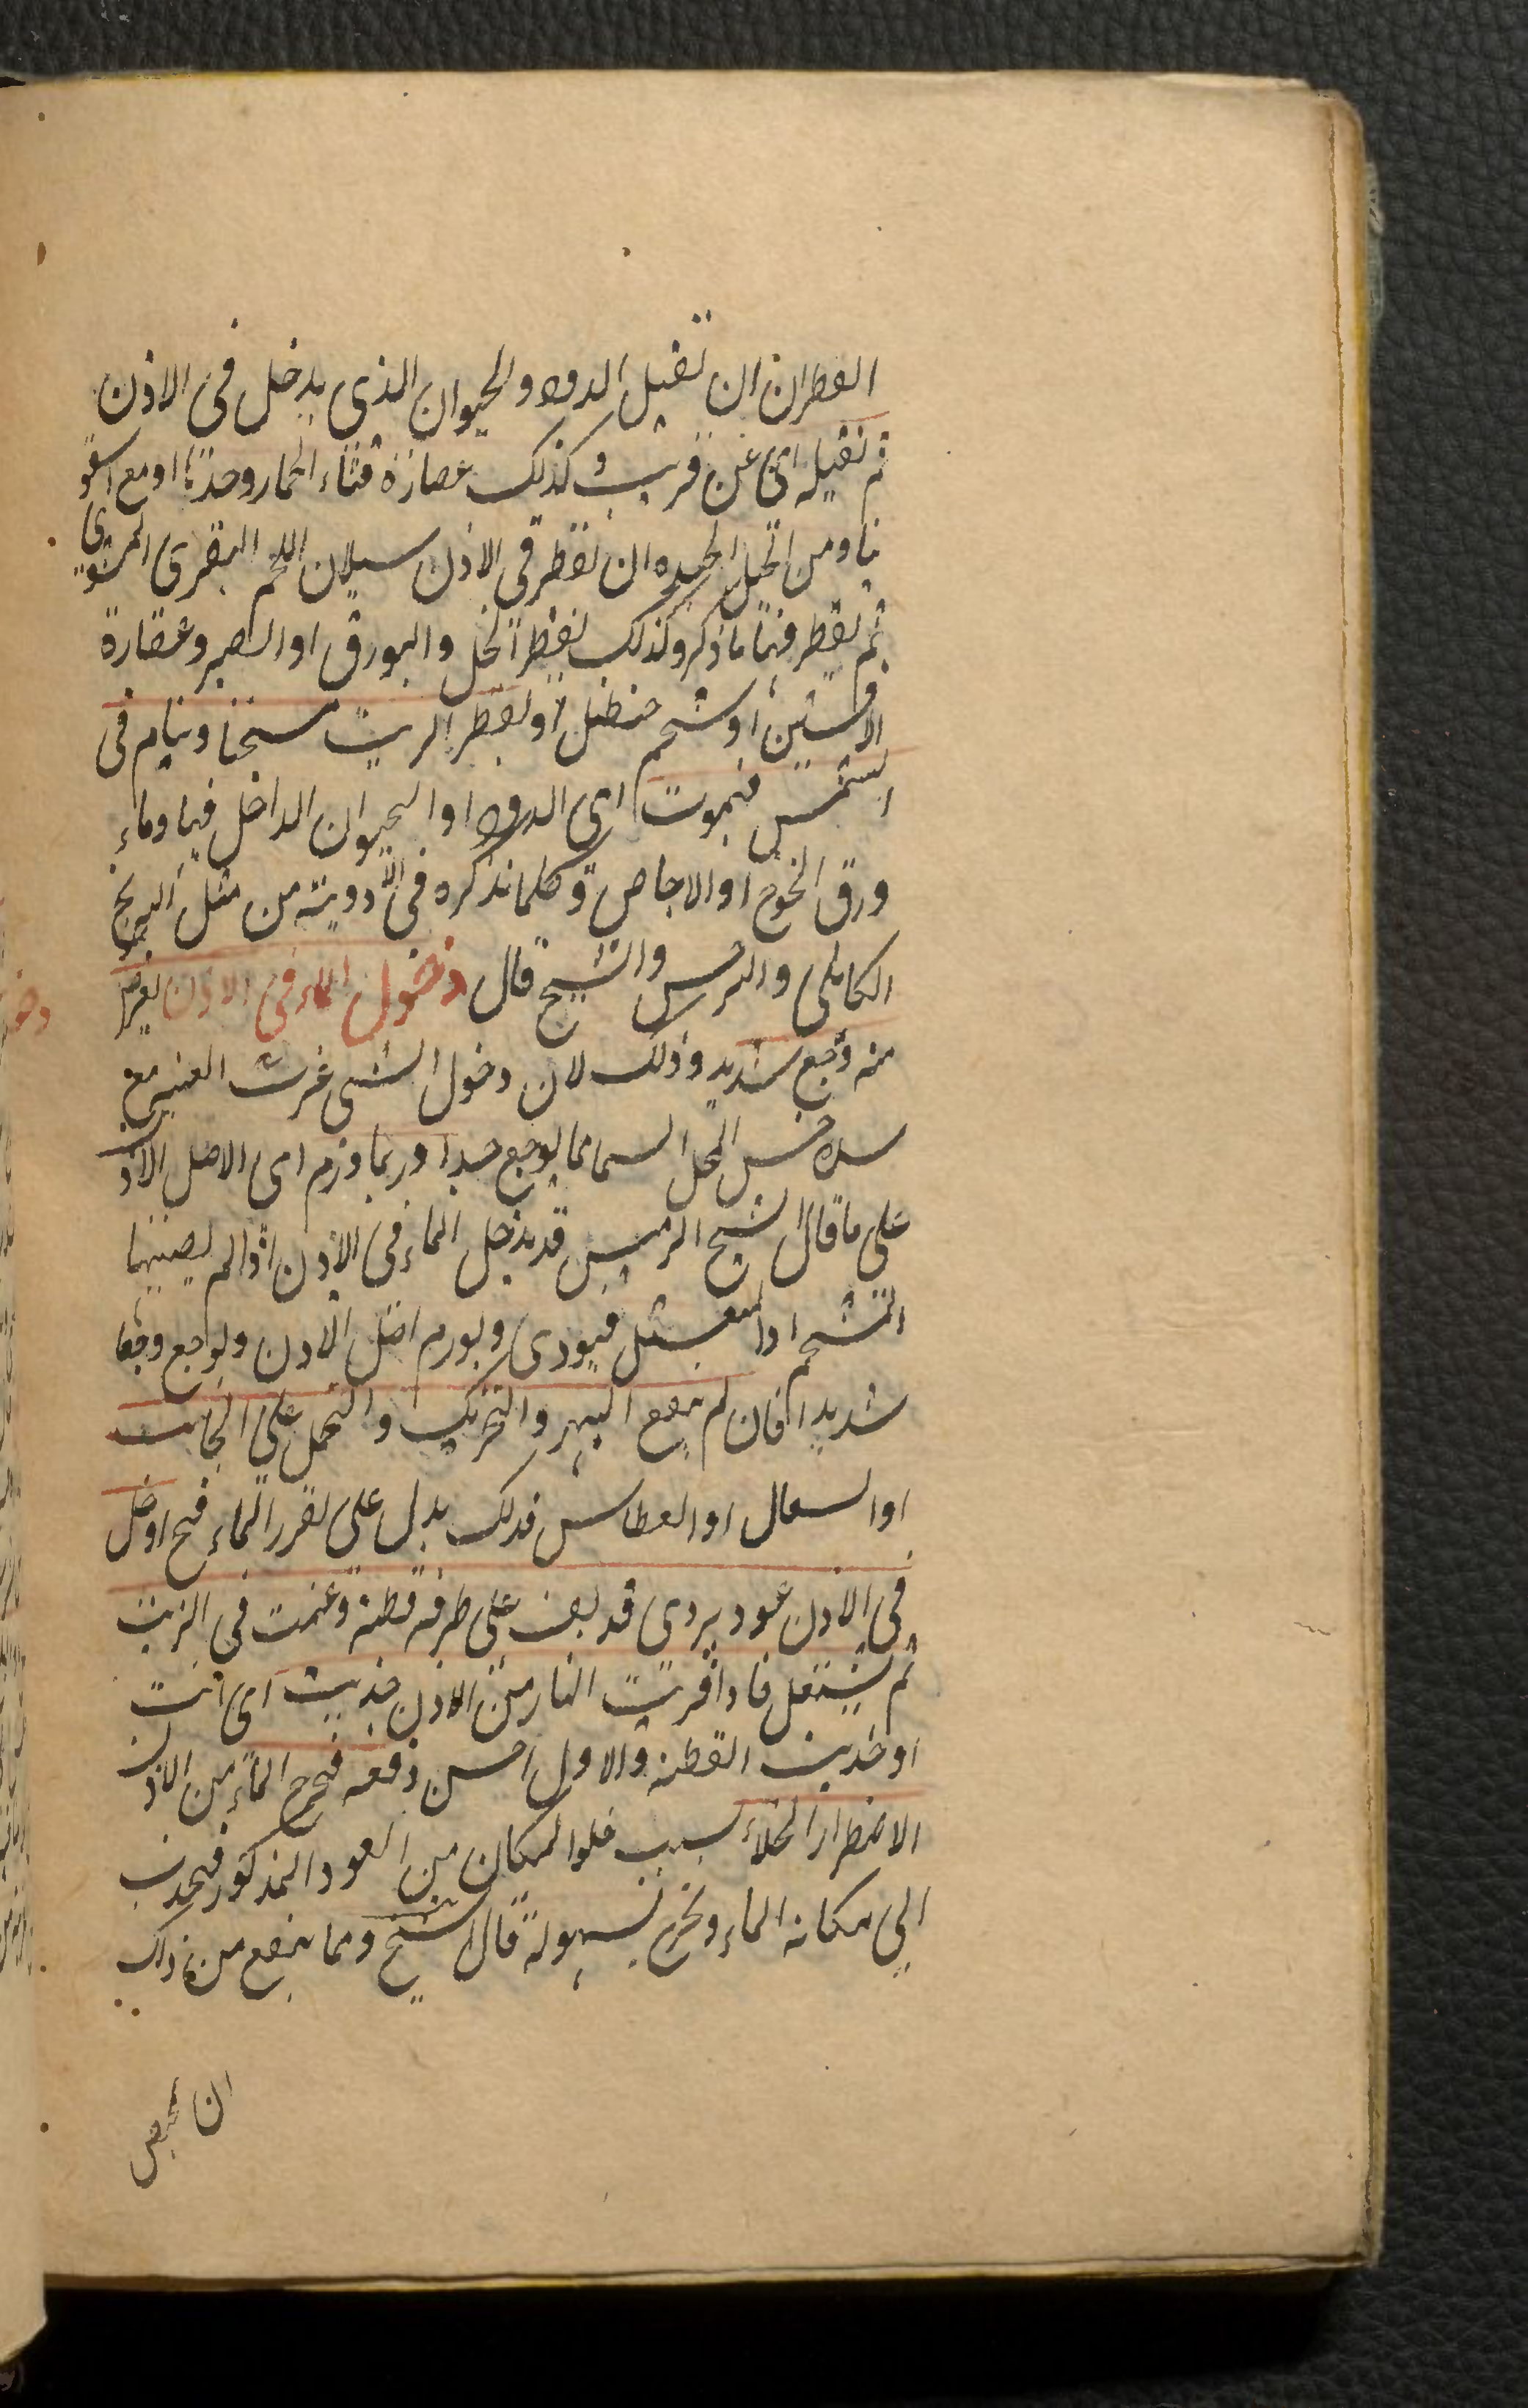 القطران ان تقتل الدود والحيوان الذي يدخل في الاذن
ثم تقتله اي عن قريب وكذلك عصارة قثاء الحمار وحدها او مع سقمو
نيا ومن الحيل الجيده ان تقطر في الاذن سيلان اللحم البقري المشوي
ثم تقطر فيها ما ذكر وكذلك تقطر الخل والبورق او الصبر وعصارة
الافسنتين او شحم حنظل او تقطر الزيت مسخنا وينام في
الشمس فيموت اي الدود او الحيوان الداخل فيها وماء
ورق الخوخ او الاجاص وكلما نذكره في الادوية من مثل البرنج
الكابلي والترمس والشيح قال دخول الماء في الاذن يعرض
منه وجع شديد وذلك لان دخول الشئ غريب مع
حس المحل السما مما يوجع جدا وربما ورم اي الاصل الاذن
على ما قال الشيخ الرئيس قد يدخل الماء في الاذن اذا لم يصنها
المستحم او المغتسل فيوذي ويورم اصل الاذن ويوجع وجعا
شديدا فان لم ينفع الهز والتحريك والحجل على الجانب
او السعال او العطاس فذلك يدل على تقرر الماء فح ادخل
في الاذن عود بردي قد يلف على طرفه قطنة وغمست في الزيت
ثم يشتعل فاذا قربت النار من الاذن جذبت اي انت
او جذبت القطنة والاول احسن دفعه فيخرج الماء من الاذن
الاضطرار الخلاء بسبب خلو المكان من العود المذكور فيجذب
الى مكانه الماء ويخرج بسهولة قال الشيخ ومما ينفع من ذلك
ان يمص